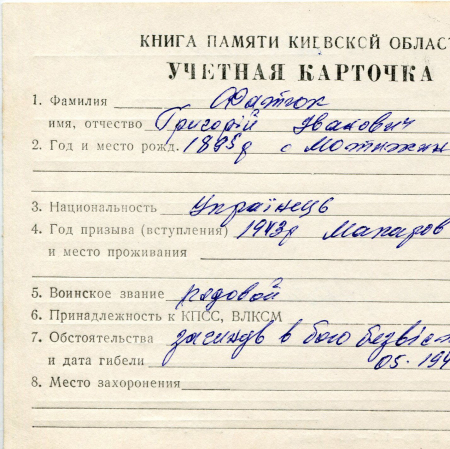 КНИГА ПАМЯТИ КИЕВСКОЙ ОБЛАС
УЧЕТНАЯ КАРТОЧКА
1. Фамилия
имя, отчество Григорій Іванович
2. Год и место рожд. 1895р с Мотижин
3. Национальность Українець
4. Год призыва (вступления) 1943р Макаров
и место проживания
5. Воинское звание рядовой
6. Принадлежность к КПСС, ВЛКСМ
7. Обстоятельства загинув в бою безвіс
и дата гибели 05.194
8. Место захоронения